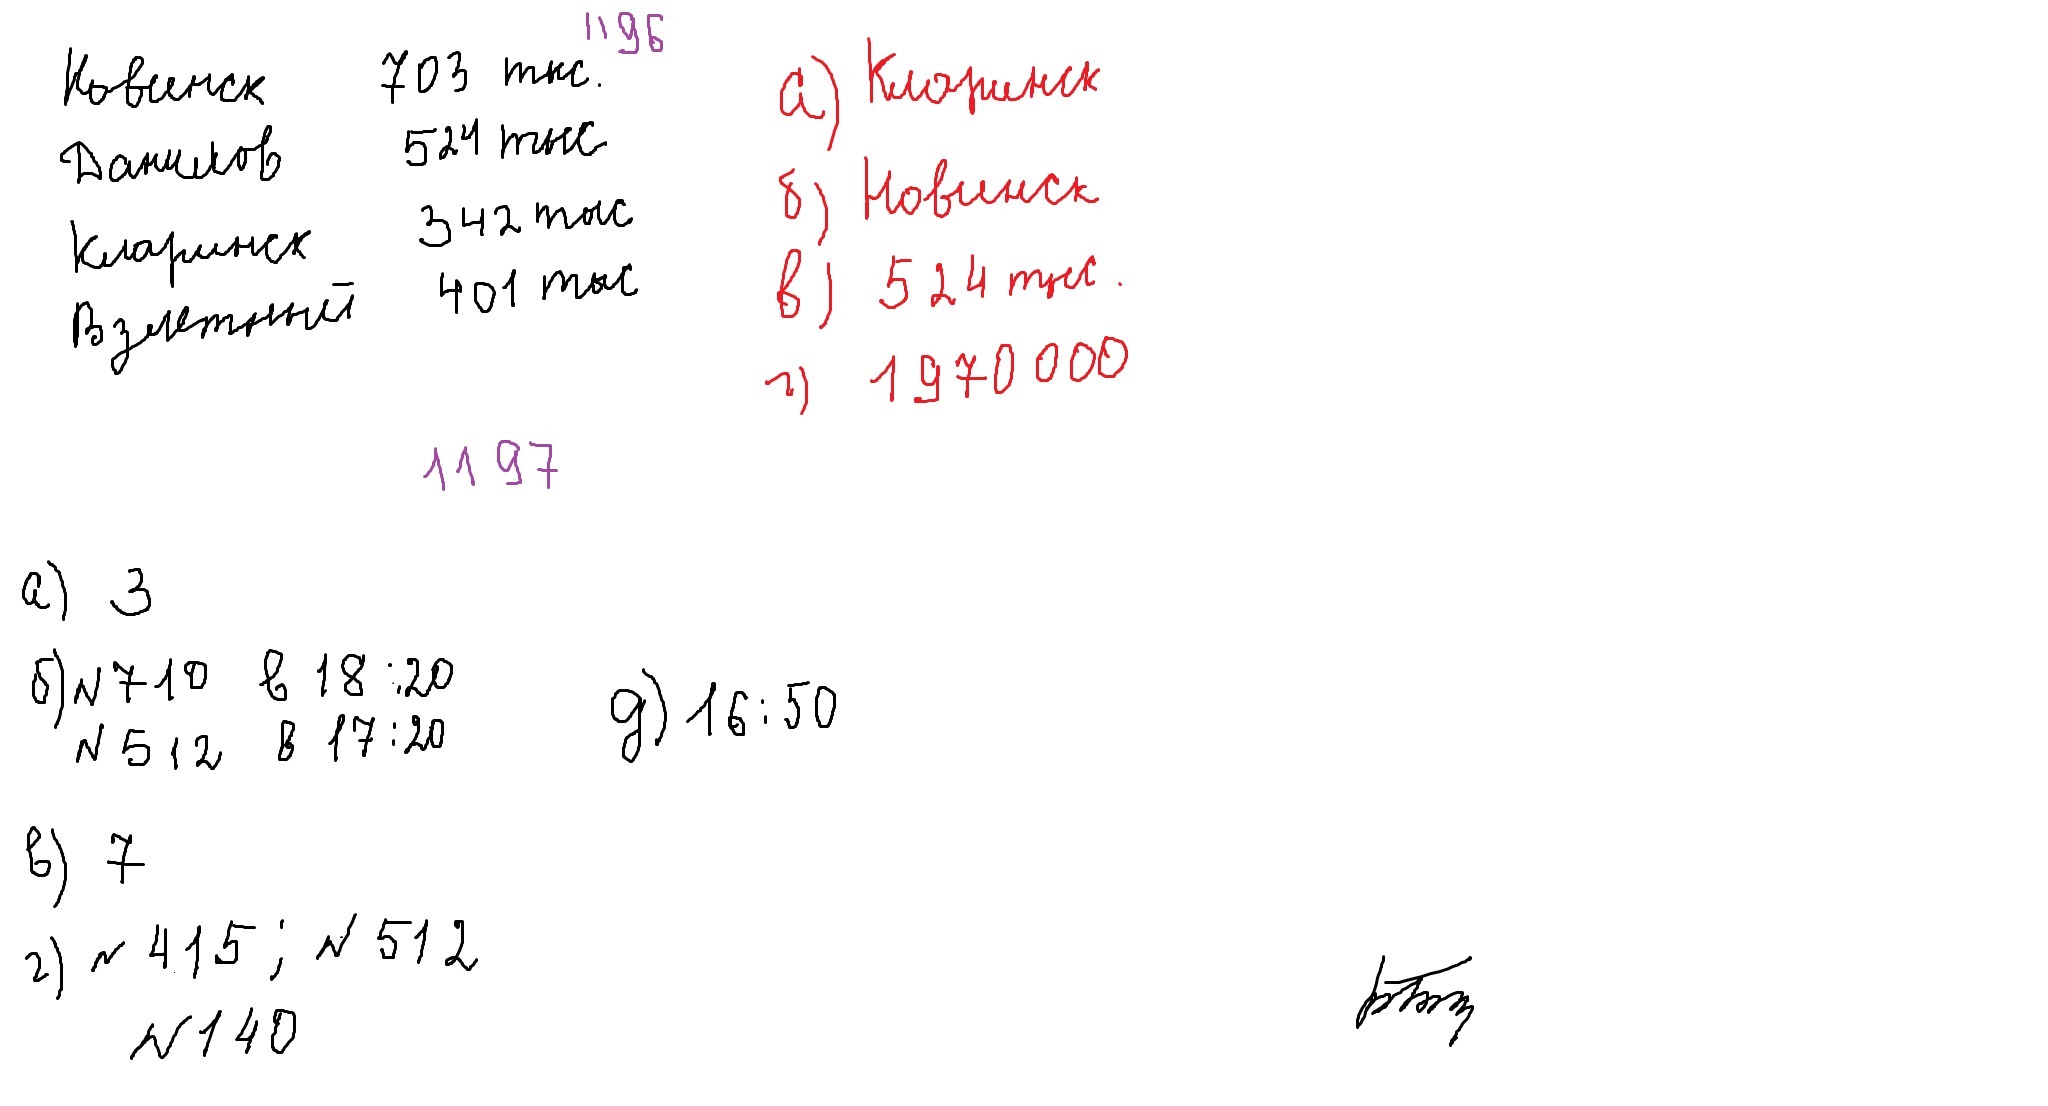 1196
Новинск 703 тыс.
Данилов 524 тыс
Кларинск 342 тыс
Взлетный 401 тыс
а) Кларинск
б) Новинск
в) 524 тыс.
г) 1970 000
1197
а) 3
б) N 710 в 18:20
N 512 в 17:20
в) 7
г) N 415; N 512
N 140
д) 16:50